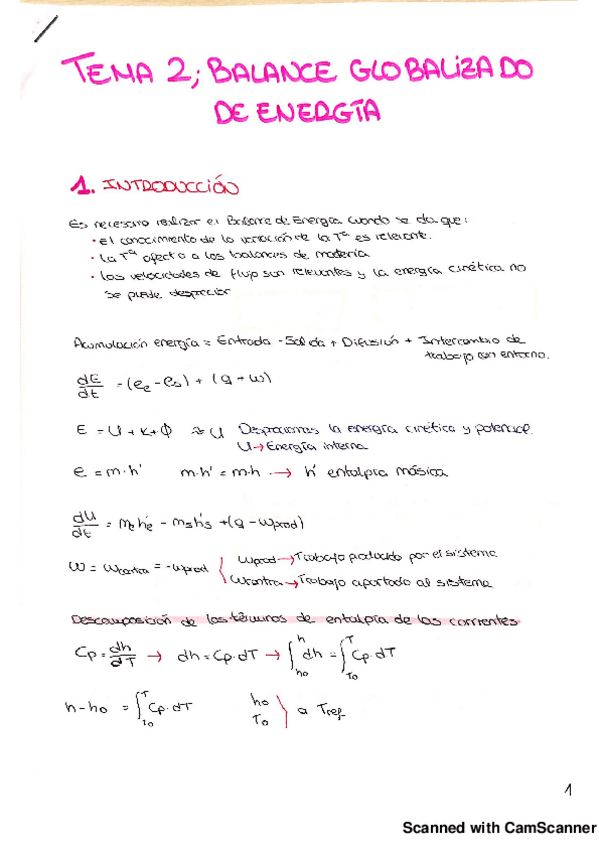 TEMA 2; BALANCE GLOBALIZADO
DE ENERGÍA
1. INTRODUCCIÓN
Es necesario realizar el Balance de Energía cuando se da que:
· el conocimiento de la variación de la Tª es relevante.
· la Tª afecta a los balances de materia
· las velocidades de flujo son relevantes y la energía cinética no
se puede despreciar
Acumulación energía = Entrada - Salida + Difusión + Intercambio de
trabajo con entorno.
dE/dt = (ee - es) + (q + w)
E = U + K + Φ ≈ U Despreciamos la energía cinética y potencial
U → Energía interna
e = m·h' m·h' = m·h → h' entalpía másica
dU/dt = me h'e - ms h's + (q - wprod)
w = wcontra = -wprod wprod → Trabajo producido por el sistema
wcontra → Trabajo aportado al sistema
Descomposición de los términos de entalpía de las corrientes
Cp = dh/dT → dh = Cp·dT → ∫ho^h dh = ∫To^T Cp·dT
h - ho = ∫To^T Cp·dT ho To } a Tref
1
Scanned with CamScanner